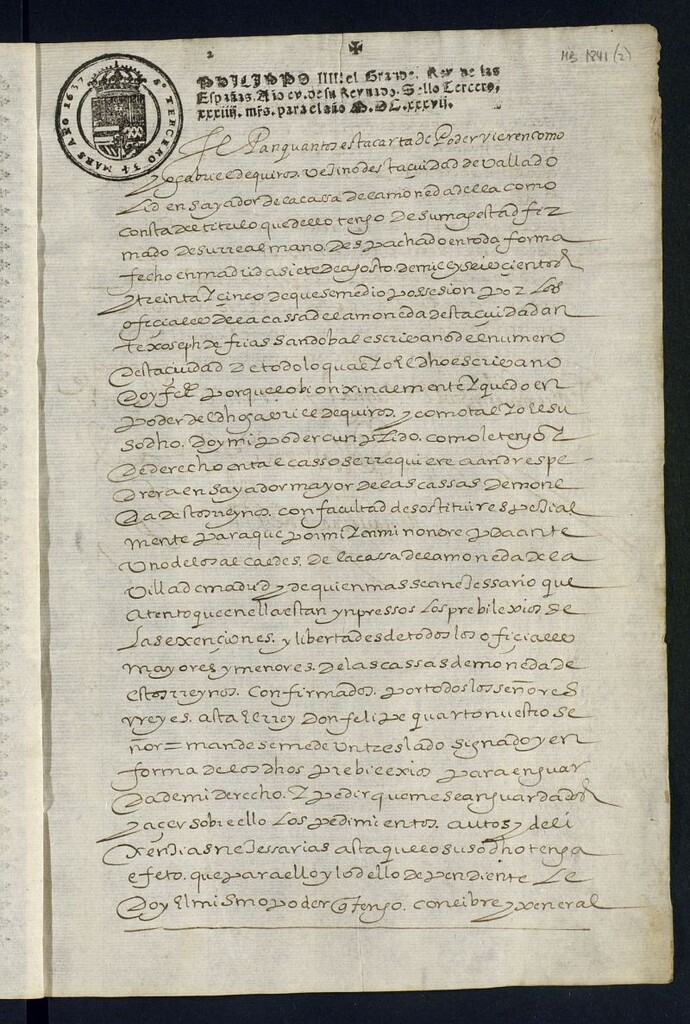 2
✠
MS 1841 (2)
PHILIPPO IIII. el Grande. Rey de las
Españas. Año xv. de su Reynado. Sello Tercero,
xxxiiij. mrs. para el año M.DC.xxxvij.
Sº TERCERO 34 MARS AÑO 1637
Sepan quantos esta carta de Poder vieren como
yo gabriel de quiros vezino desta ciudad de vallado
lid ensayador de la cassa de la moneda della como
consta del titulo que dello tengo de su magestad fir
mado de su rreal mano. despachado en toda forma
fecho en madrid a siete de agosto. de mil y seiscientos
y treinta y çinco de que se me dio possesion por los
ofiçiales de la cassa de la moneda desta ciudad an
te xoseph de frias sandobal escriuano del numero
desta ciudad de todo lo qual yo el dho escriuano
doy fee porque lo bi orixinalmente y quedo en
poder del dho gabriel de quiros. y como tal yo el su
sodho. doy mi poder cunplido. como le tengo y
de derecho en tal casso se rrequiere a andres pe-
drera ensayador mayor de las cassas de mone
da destos rreynos. con facultad de sostituir espeçial
mente para que por mi y en mi nonbre pida ante
uno de los alcaldes. de la cassa de la moneda de la
villa de madrid y de quien mas sea neçessario que
atento que en ella estan ynpressos los prebilexios de
las exençiones. y libertades de todos los ofiçiales
mayores y menores. de las cassas de moneda de
estos rreynos. confirmados. por todos los señores
rreyes. asta el rrey don felipe quarto nuestro se
ñor = mande se me de un treslado signado y en
forma de los dhos prebilexios para en guar
da de mi derecho. y pedir que me sean guardados
y açer sobre ello los pedimientos. autos y deli
xençias neçessarias asta que lo susodho tenga
efeto. que para ello y lo dello dependiente le
doy el mismo poder que tengo. con libre y xeneral